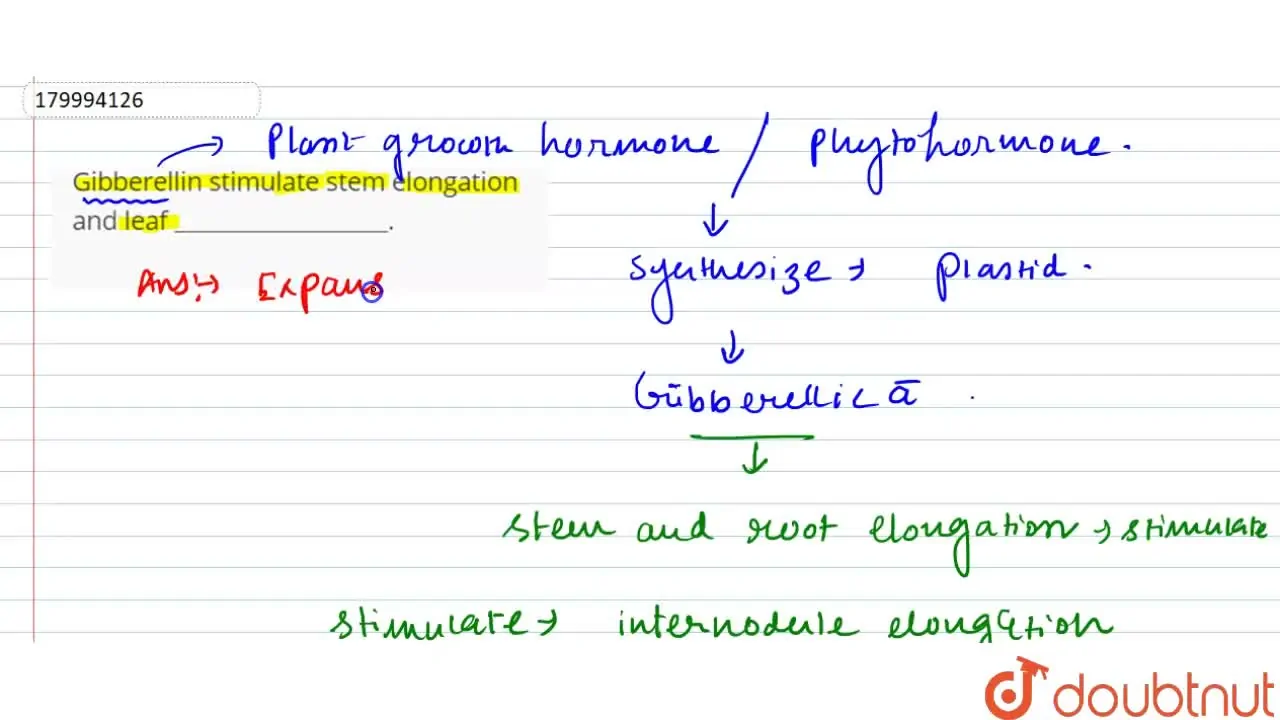 179994126
Plant growth hormone / Phytohormone.
Gibberellin stimulate stem elongation
and leaf ________________.
Ans:→ Expans
synthesize → plastid.
Gibberellic ā
stem and root elongation → stimulate
stimulate → internodule elongation
doubtnut